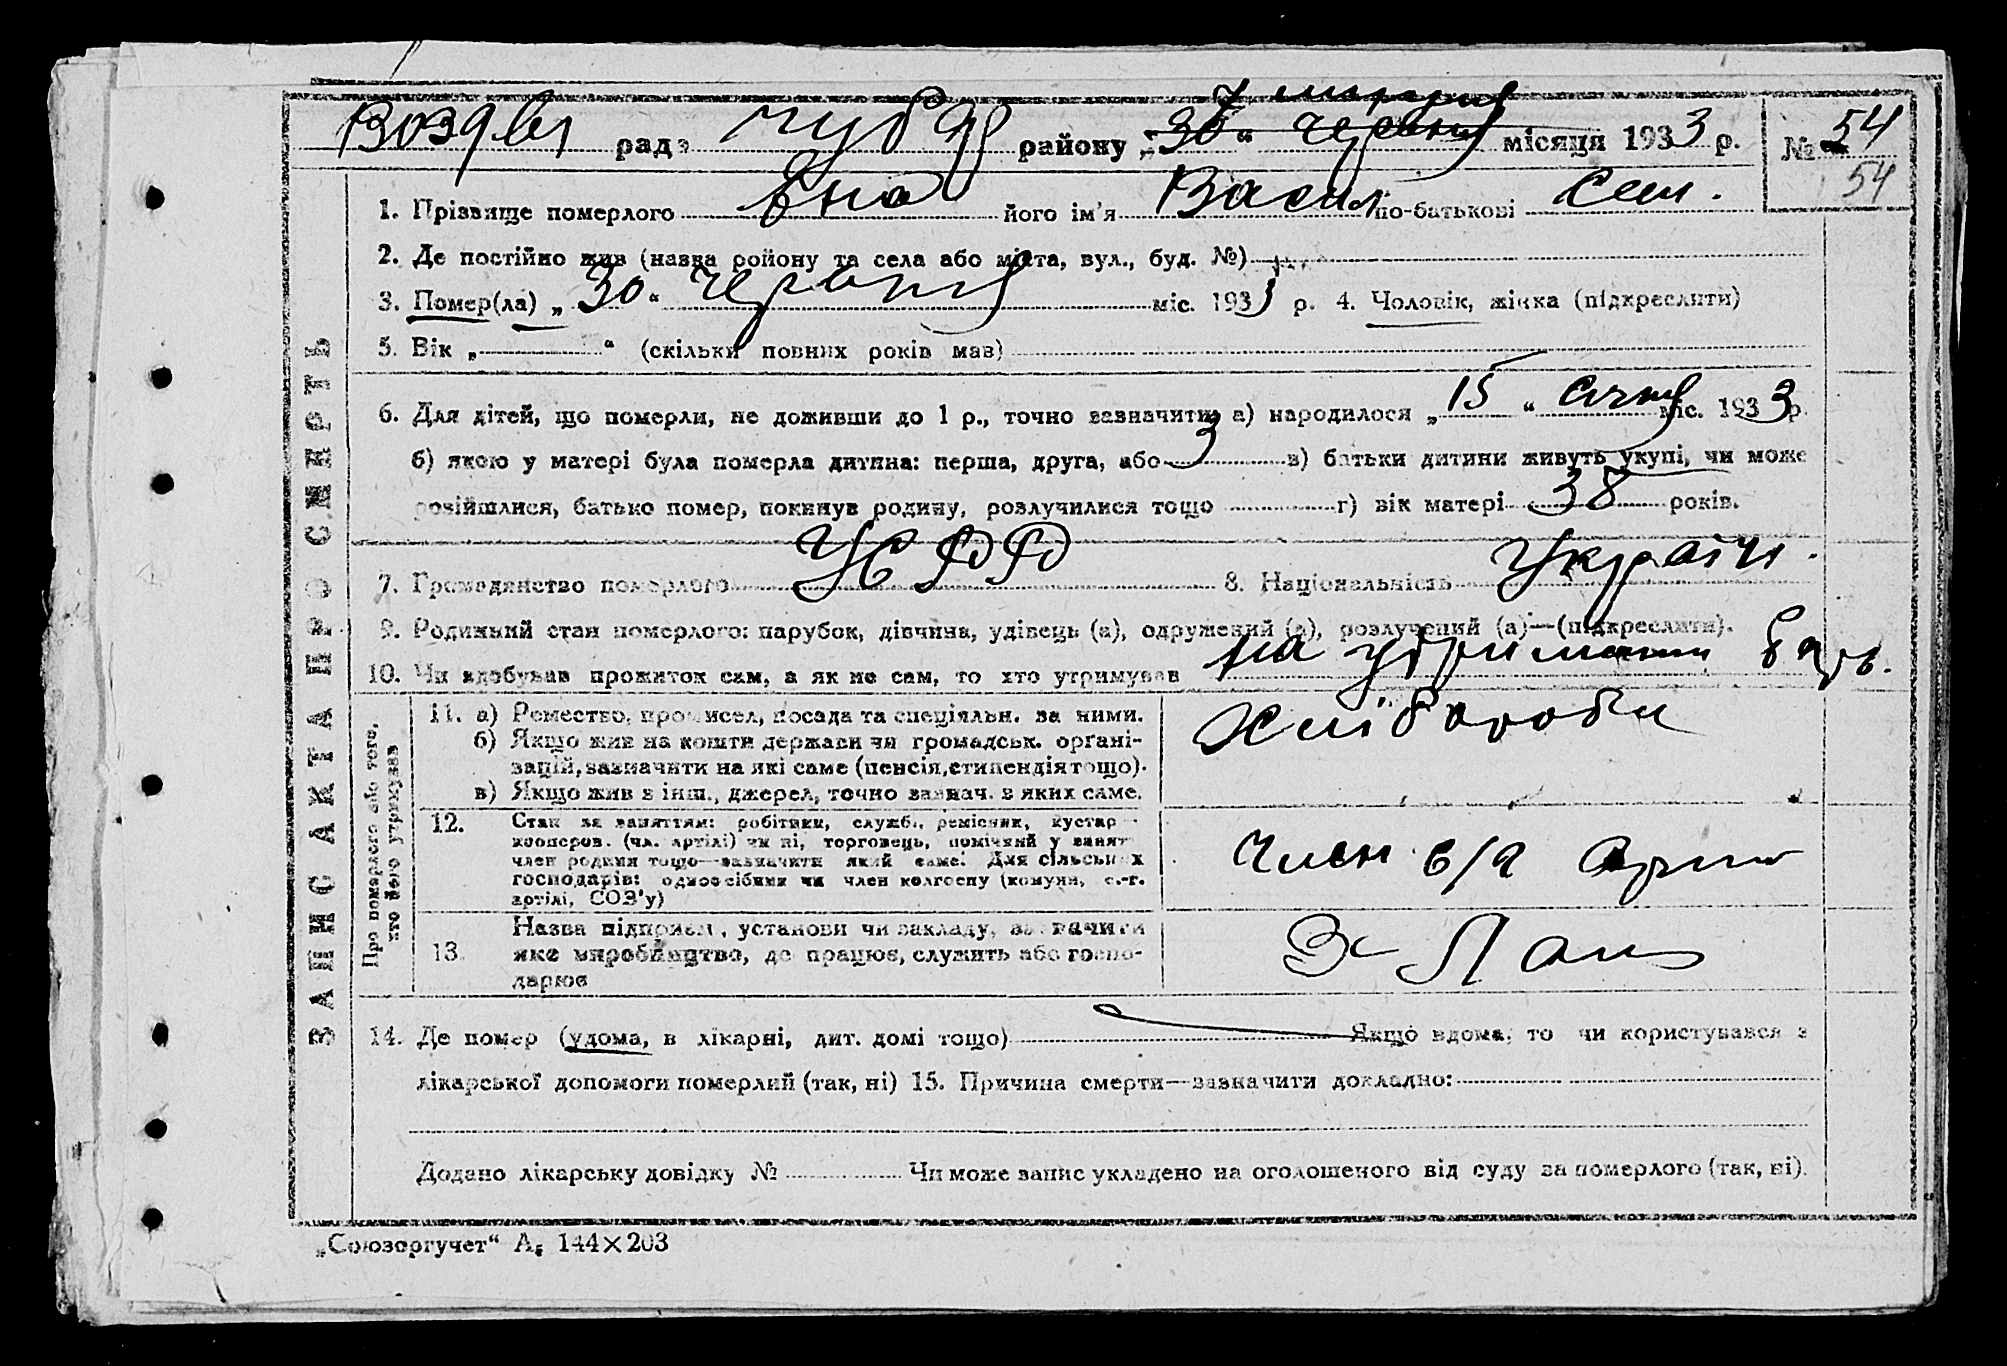 рада района „30“ червня місяця 1933 р. № 54
54
1. Прізвище померлого його ім'я Васил по-батькові Сем.
2. Де постійно жив (назва району та села або міста, вул., буд. №)
3. Помер(ла) „30“ червня міс. 1933 р. 4. Чоловік, жінка (підкреслити)
5. Вік „ “ (скільки повних років мав)
6. Для дітей, що померли, не доживши до 1 р., точно зазначити: а) народилося „15“ січня міс. 1933 р.
б) якою у матері була померла дитина: перша, друга, або 3 в) батьки дитини живуть укупі, чи може
розійшлися, батько помер, покинув родину, розлучилися тощо г) вік матері 38 років.
7. Громадянство померлого УСРР 8. Національність Україн.
9. Родинний стан померлого: парубок, дівчина, удівець (а), одружений (а), розлучений (а)—(підкреслити).
10. Чи здобував прожиток сам, а як не сам, то хто утримував на утриманні батьк.
ЗАПИС АКТА ПРО СМЕРТЬ
Про померлого або того, хто його утримував
11. а) Ремество, промисел, посада та спеціяльн. за ними.
б) Якщо жив на кошти держави чи громадськ. органі-
зацій, зазначити на які саме (пенсія, стипендія тощо).
в) Якщо жив з інш., джерел, точно зазнач. з яких саме.
Хлібороби
12. Стан за заняттям: робітник, службо., ремісник, кустар
кооперов. (чл. артілі) чи ні, торговець, помічний у занят
член родини тощо—зазначити який саме. Для сільських
господарів: одноосібник чи член колгоспу (комуни, с.-г.
артілі, СОЗ'у)
Член с/г Арт
13. Назва підприєм., установи чи закладу, зазначити
яке виробництво, де працює, служить або госпо-
дарює
14. Де помер (удома, в лікарні, дит. домі тощо) Якщо вдома, то чи користувався з
лікарської допомоги померлий (так, ні) 15. Причина смерти—зазначити докладно:
Додано лікарську довідку № Чи може запис укладено на оголошеного від суду за померлого (так, ні).
„Союзоргучет“ А₅ 144×203